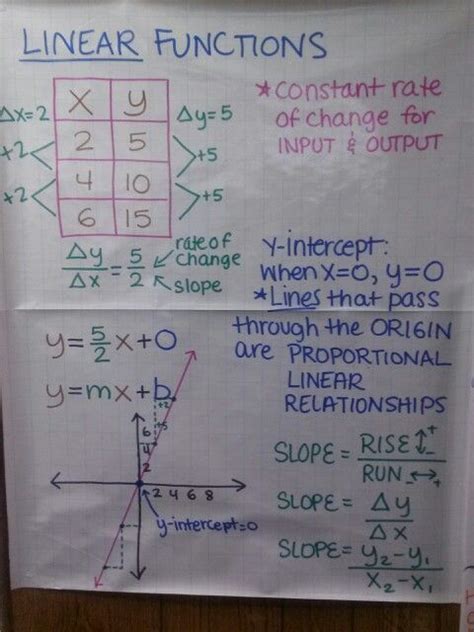 LINEAR FUNCTIONS
Δx=2
x y
Δy=5
+2
2 5
+5
+2
4 10
+5
6 15
*Constant rate
of change for
INPUT & OUTPUT
Δy/Δx = 5/2
rate of
change
slope
Y-intercept:
when x=0, y=0
*Lines that pass
through the ORIGIN
are PROPORTIONAL
LINEAR
RELATIONSHIPS
y=5/2x+0
y=mx+b
+2
+5
6
4
2
2 4 6 8
y-intercept=0
SLOPE = RISE↕+-/RUN -↔+
SLOPE = Δy/Δx
SLOPE = y₂-y₁/x₂-x₁